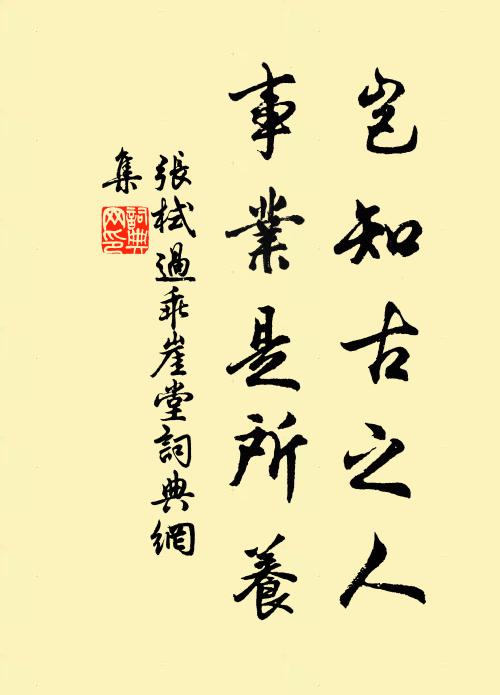 岂知古之人
事業是所養
張栻過乖崖堂詞典網
集
詞典
网印